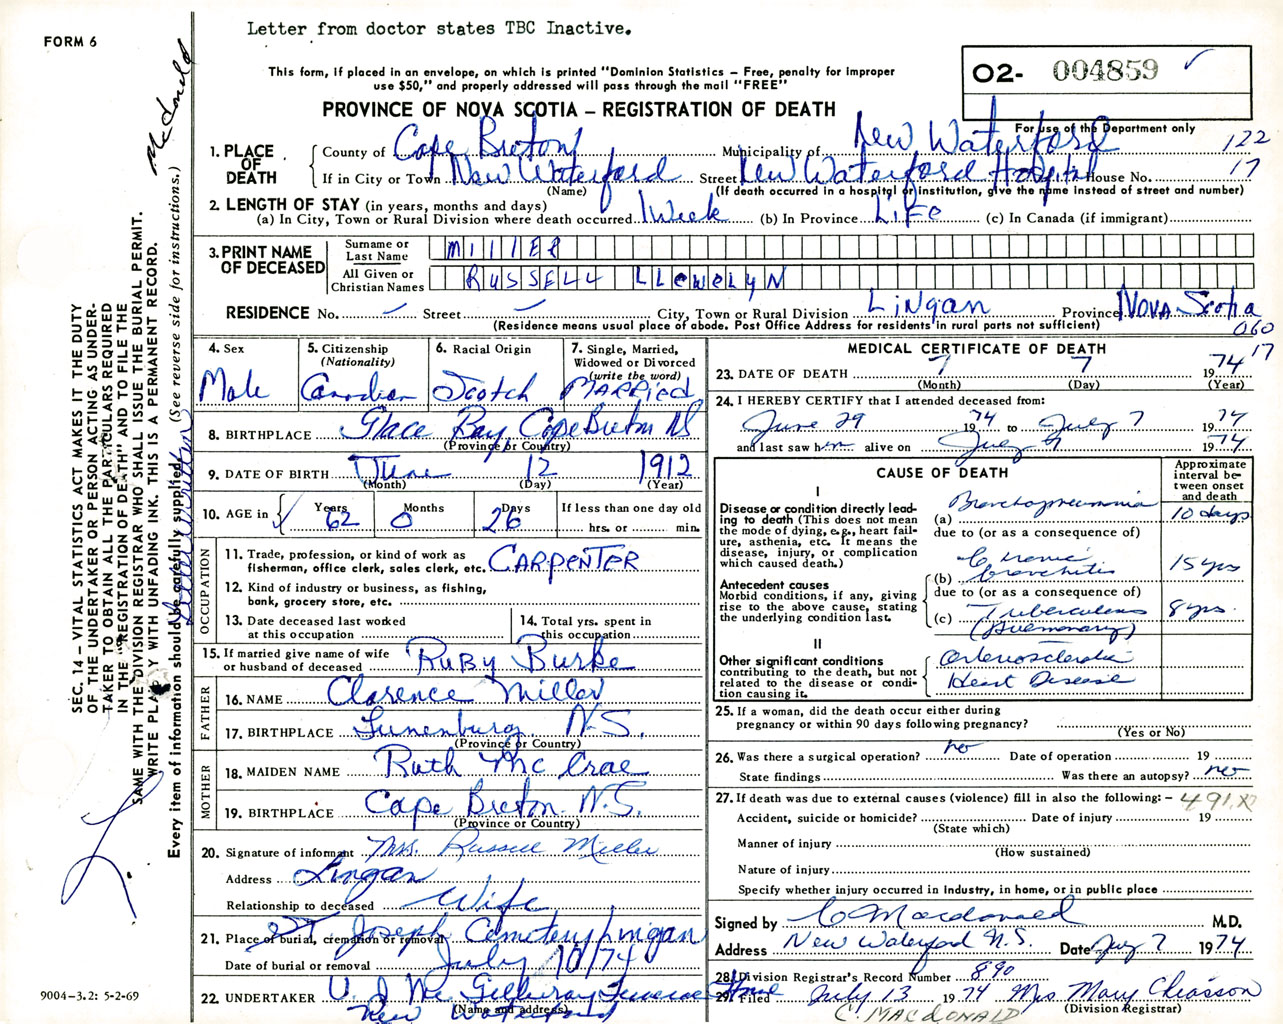 Letter from doctor states TBC Inactive.
FORM 6
This form, if placed in an envelope, on which is printed "Dominion Statistics – Free, penalty for improper
use $50," and properly addressed will pass through the mail "FREE"
O2- 004859
PROVINCE OF NOVA SCOTIA – REGISTRATION OF DEATH
For use of the Department only
McDonald
SEC. 14 – VITAL STATISTICS ACT MAKES IT THE DUTY
OF THE UNDERTAKER OR PERSON ACTING AS UNDER-
TAKER TO OBTAIN ALL THE PARTICULARS REQUIRED
IN THE "REGISTRATION OF DEATH" AND TO FILE THE
SAME WITH THE DIVISION REGISTRAR WHO SHALL ISSUE THE BURIAL PERMIT.
WRITE PLAINLY WITH UNFADING INK. THIS IS A PERMANENT RECORD.
Every item of information should be carefully supplied. (See reverse side for instructions.)
1. PLACE OF DEATH
County of Cape Breton Municipality of New Waterford 122
If in City or Town New Waterford Street New Waterford Hospital House No. 17
(Name) (If death occurred in a hospital or institution, give the name instead of street and number)
2. LENGTH OF STAY (in years, months and days)
(a) In City, Town or Rural Division where death occurred 1 Week (b) In Province LiFe (c) In Canada (if immigrant)
3. PRINT NAME OF DECEASED
Surname or Last Name MIllER
All Given or Christian Names RUSSELL LLEWELYN
RESIDENCE No. – Street – City, Town or Rural Division LiNgan Province Nova Scotia
(Residence means usual place of abode. Post Office Address for residents in rural parts not sufficient) 060
17
4. Sex Male
5. Citizenship (Nationality) Canadian
6. Racial Origin Scotch
7. Single, Married, Widowed or Divorced (write the word) MARRied
8. BIRTHPLACE Glace Bay Cape Breton NS
(Province or Country)
9. DATE OF BIRTH June 12 1912
(Month) (Day) (Year)
10. AGE in Years 62 Months 0 Days 26 If less than one day old hrs. or min.
OCCUPATION
11. Trade, profession, or kind of work as
fisherman, office clerk, sales clerk, etc. CARPENTER
12. Kind of industry or business, as fishing,
bank, grocery store, etc.
13. Date deceased last worked
at this occupation
14. Total yrs. spent in
this occupation
15. If married give name of wife
or husband of deceased Ruby Burke
FATHER
16. NAME Clarence Miller
17. BIRTHPLACE Lunenburg N.S.
(Province or Country)
MOTHER
18. MAIDEN NAME Ruth McCrae
19. BIRTHPLACE Cape Breton N.S.
(Province or Country)
20. Signature of informant Mrs. Russell Miller
Address Lingan
Relationship to deceased Wife
21. Place of burial, cremation or removal St. Joseph Cemetery Lingan
Date of burial or removal July 10/74
22. UNDERTAKER V. J. Mc Gillivray Funeral Home
New Waterford
(Name and address)
9004–3.2: 5-2-69
MEDICAL CERTIFICATE OF DEATH
23. DATE OF DEATH 7 7 1974
(Month) (Day) (Year)
24. I HEREBY CERTIFY that I attended deceased from:
June 29 1974 to July 7 1974
and last saw him alive on July 7 1974
CAUSE OF DEATH
Approximate interval between onset and death
I
Disease or condition directly leading to death (This does not mean the mode of dying, e.g., heart failure, asthenia, etc. It means the disease, injury, or complication which caused death.)
(a) Bronchopneumonia 10 days
due to (or as a consequence of)
Antecedent causes
Morbid conditions, if any, giving rise to the above cause, stating the underlying condition last.
(b) Chronic bronchitis 15 yrs
due to (or as a consequence of)
(c) Tuberculosis (Pulmonary) 8 yrs.
II
Other significant conditions contributing to the death, but not related to the disease or condition causing it.
Arteriosclerotic
Heart Disease
25. If a woman, did the death occur either during
pregnancy or within 90 days following pregnancy?
(Yes or No)
26. Was there a surgical operation? no Date of operation 19
State findings Was there an autopsy? no
27. If death was due to external causes (violence) fill in also the following: – 491.X
Accident, suicide or homicide? Date of injury 19
(State which)
Manner of injury
(How sustained)
Nature of injury
Specify whether injury occurred in industry, in home, or in public place
Signed by C Macdonald M.D.
Address New Waterford N.S. Date July 7 1974
28. Division Registrar's Record Number 890
29. Filed July 13 1974 Mrs Mary Chiasson
(Division Registrar)
C. MACDONALD